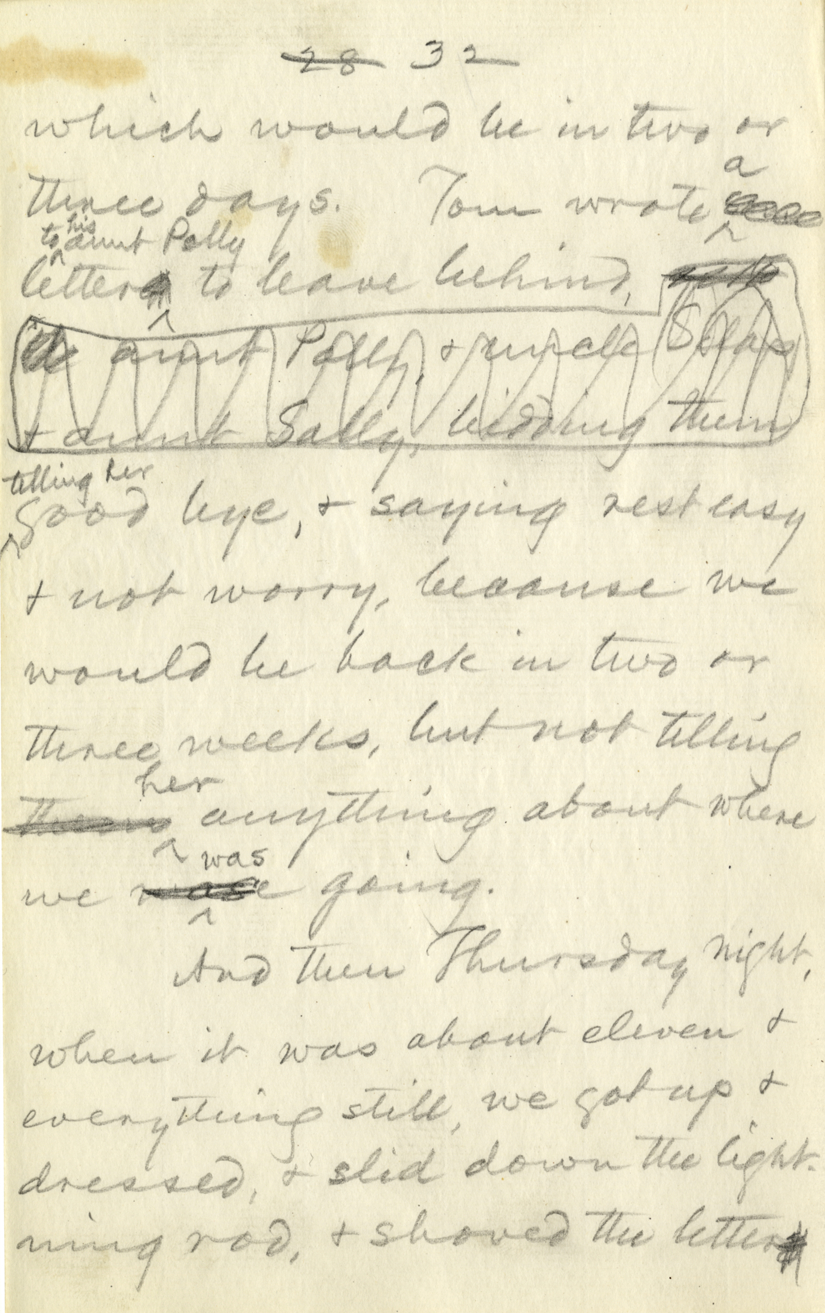 28 32
which would be in two or
three days. Tom wrote a
to his aunt Polly
letter to leave behind,
aunt Polly, & uncle Silas
& aunt Sally, bidding them
telling her
good bye, & saying rest easy
& not worry, because we
would be back in two or
three weeks, but not telling
her
them anything about where
was
we going.
And then Thursday night,
when it was about eleven &
everything still, we got up &
dressed, & slid down the light-
ning rod, & shoved the letter